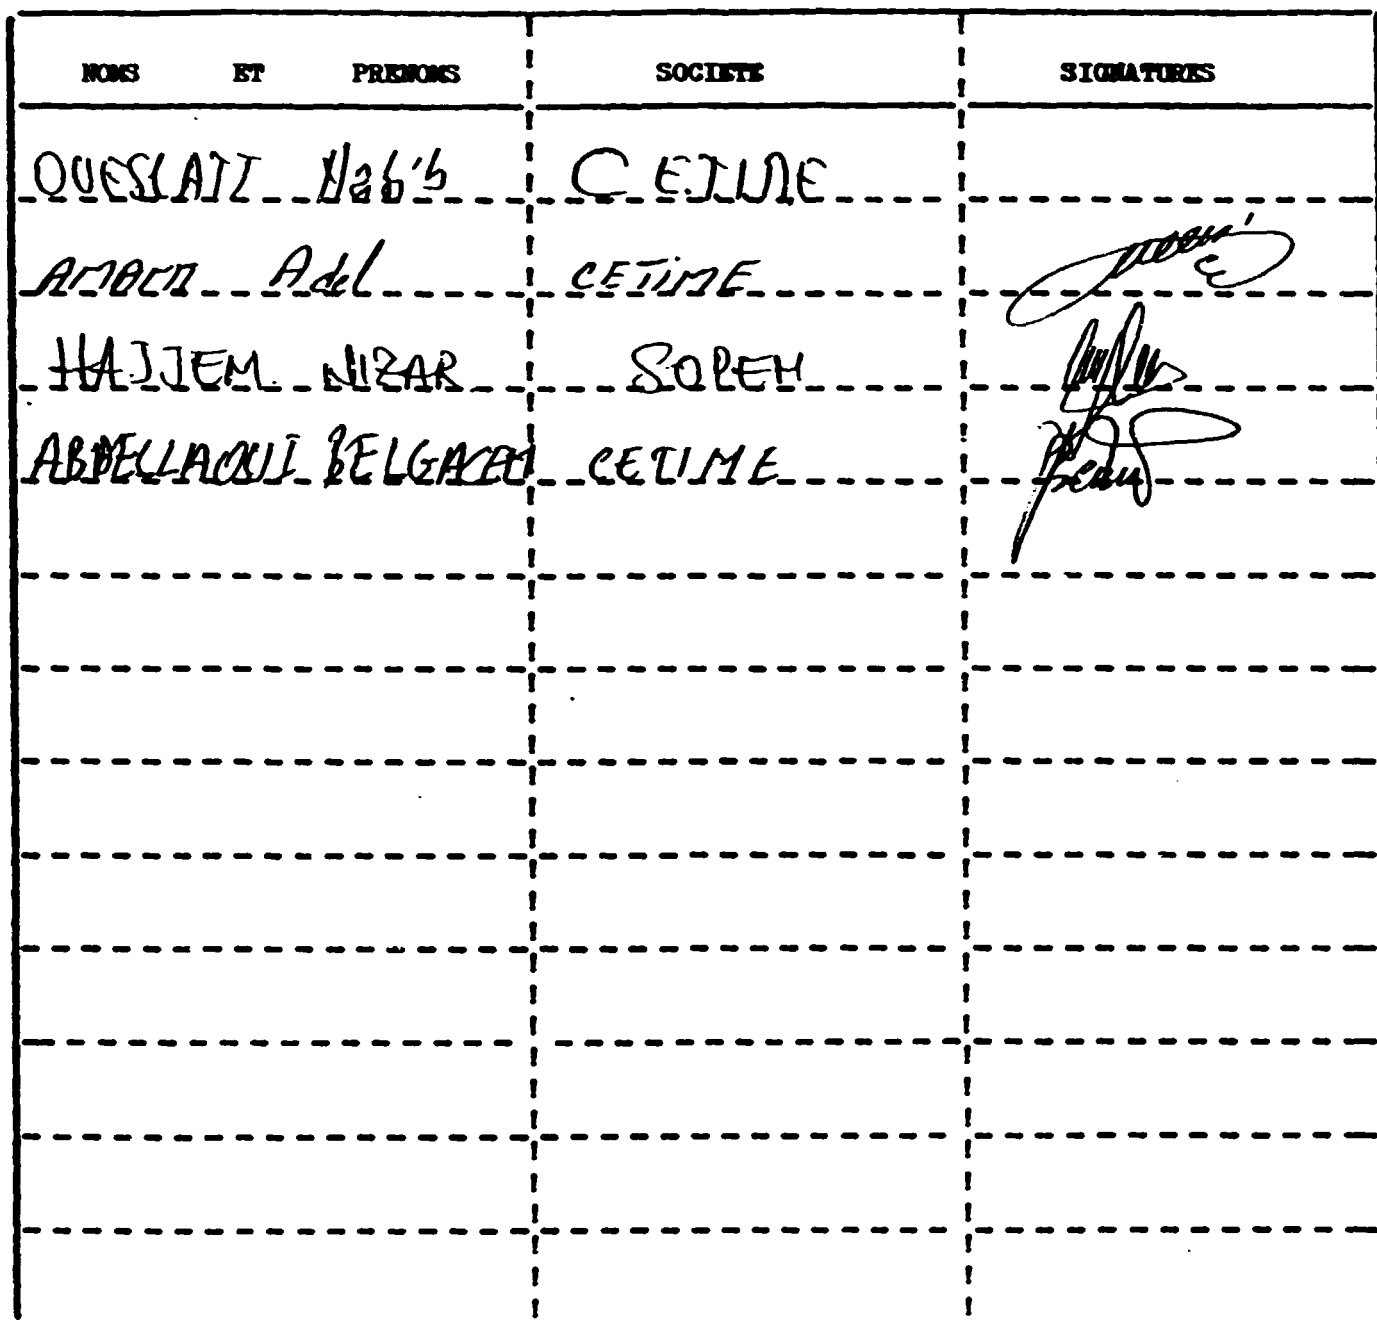 NOMS ET PRENOMS SOCIETE SIGNATURES
OUESLATI Hab'b CETIME
Adel CETIME
HAJJEM NIZAR SOPEM
ABDELLAOUI BELGACEM CETIME